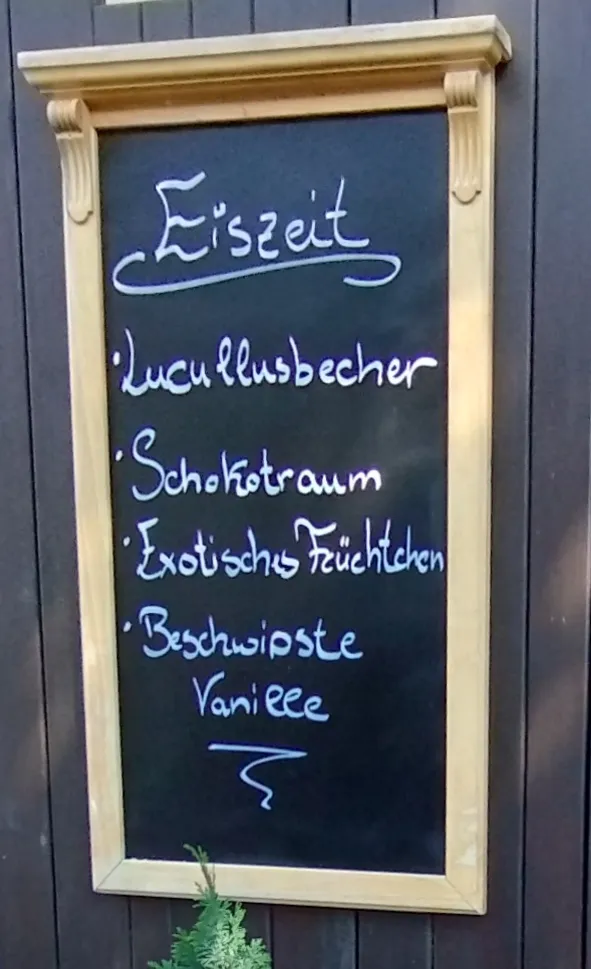 Eiszeit
· Lucullusbecher
· Schokotraum
· Exotisches Früchtchen
· Beschwipste
Vanille